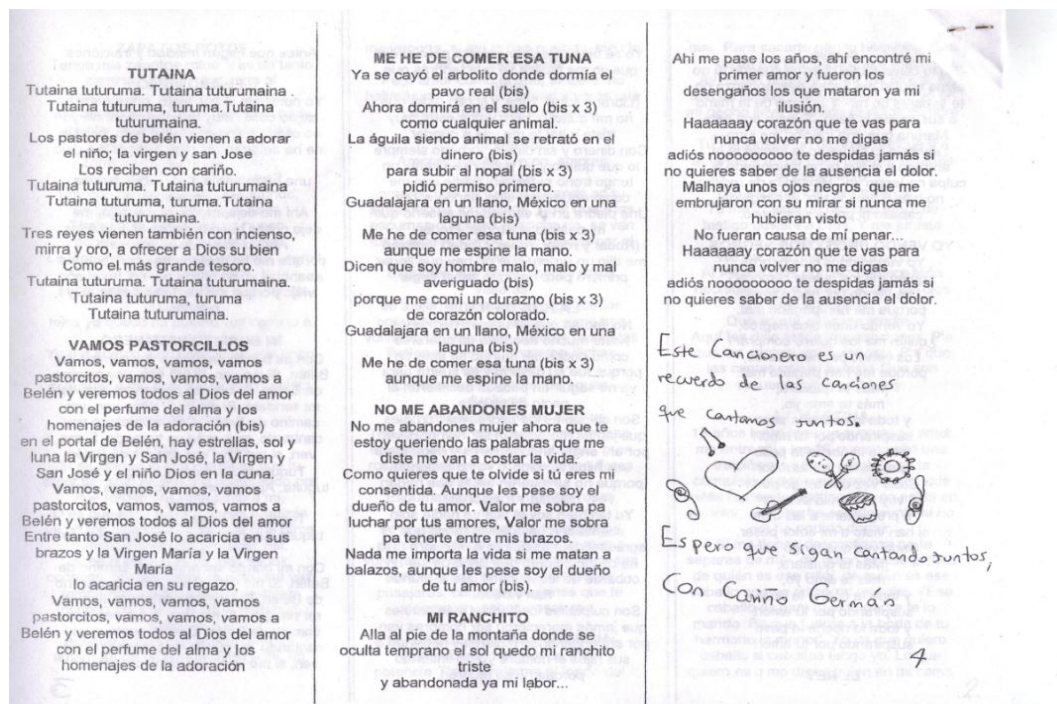 TUTAINA
Tutaina tuturuma. Tutaina tuturumaina .
Tutaina tuturuma, turuma.Tutaina
tuturumaina.
Los pastores de belén vienen a adorar
el niño; la virgen y san Jose
Los reciben con cariño.
Tutaina tuturuma. Tutaina tuturumaina
Tutaina tuturuma, turuma.Tutaina
tuturumaina.
Tres reyes vienen también con incienso,
mirra y oro, a ofrecer a Dios su bien
Como el más grande tesoro.
Tutaina tuturuma. Tutaina tuturumaina.
Tutaina tuturuma, turuma
Tutaina tuturumaina.
VAMOS PASTORCILLOS
Vamos, vamos, vamos, vamos
pastorcitos, vamos, vamos, vamos a
Belén y veremos todos al Dios del amor
con el perfume del alma y los
homenajes de la adoración (bis)
en el portal de Belén, hay estrellas, sol y
luna la Virgen y San José, la Virgen y
San José y el niño Dios en la cuna.
Vamos, vamos, vamos, vamos
pastorcitos, vamos, vamos, vamos a
Belén y veremos todos al Dios del amor
Entre tanto San José lo acaricia en sus
brazos y la Virgen María y la Virgen
María
lo acaricia en su regazo.
Vamos, vamos, vamos, vamos
pastorcitos, vamos, vamos, vamos a
Belén y veremos todos al Dios del amor
con el perfume del alma y los
homenajes de la adoración
ME HE DE COMER ESA TUNA
Ya se cayó el arbolito donde dormía el
pavo real (bis)
Ahora dormirá en el suelo (bis x 3)
como cualquier animal.
La águila siendo animal se retrató en el
dinero (bis)
para subir al nopal (bis x 3)
pidió permiso primero.
Guadalajara en un llano, México en una
laguna (bis)
Me he de comer esa tuna (bis x 3)
aunque me espine la mano.
Dicen que soy hombre malo, malo y mal
averiguado (bis)
porque me comi un durazno (bis x 3)
de corazón colorado.
Guadalajara en un llano, México en una
laguna (bis)
Me he de comer esa tuna (bis x 3)
aunque me espine la mano.
NO ME ABANDONES MUJER
No me abandones mujer ahora que te
estoy queriendo las palabras que me
diste me van a costar la vida.
Como quieres que te olvide si tú eres mi
consentida. Aunque les pese soy el
dueño de tu amor. Valor me sobra pa
luchar por tus amores, Valor me sobra
pa tenerte entre mis brazos.
Nada me importa la vida si me matan a
balazos, aunque les pese soy el dueño
de tu amor (bis).
MI RANCHITO
Alla al pie de la montaña donde se
oculta temprano el sol quedo mi ranchito
triste
y abandonada ya mi labor...
Ahi me pase los años, ahí encontré mi
primer amor y fueron los
desengaños los que mataron ya mi
ilusión.
Haaaaaay corazón que te vas para
nunca volver no me digas
adiós nooooooooo te despidas jamás si
no quieres saber de la ausencia el dolor.
Malhaya unos ojos negros que me
embrujaron con su mirar si nunca me
hubieran visto
No fueran causa de mí penar.
Haaaaaay corazón que te vas para
nunca volver no me digas
adiós nooooooooo te despidas jamás si
no quieres saber de la ausencia el dolor.
Este Cancionero es un
recuerdo de las canciones
que cantamos juntos.
Espero que sigan cantando juntos,
Con Cariño Germán
4